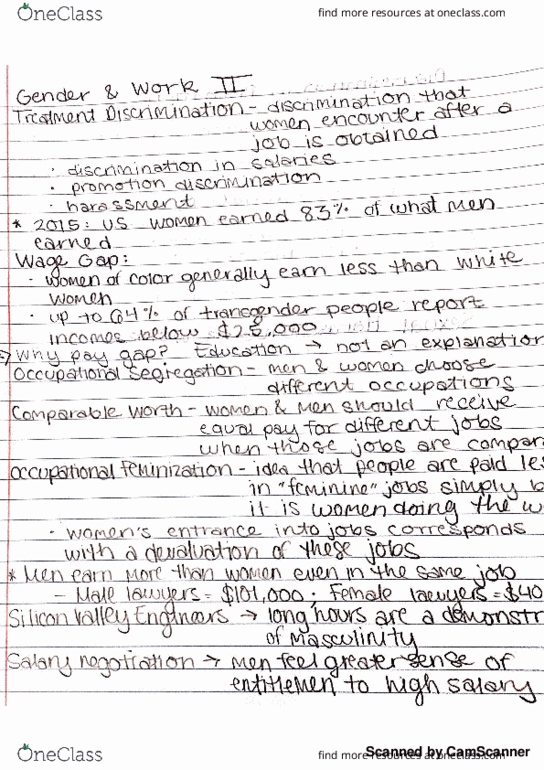 OneClass
find more resources at oneclass.com
Gender & Work II
Treatment Discrimination - discrimination that
women encounter after a
job is obtained
· discrimination in salaries
· promotion discrimination
· harassment
* 2015: US women earned 83% of what men
earned
Wage Gap:
· women of color generally earn less than white
women
· up to 64% of transgender people report
incomes below $25,000
Why pay gap? Education → not an explanation
Occupational Segregation - men & women choose
different occupations
Comparable Worth - women & men should receive
equal pay for different jobs
when those jobs are compar
Occupational Feminization - idea that people are paid les
in "feminine" jobs simply b
it is women doing the w
· women's entrance into jobs corresponds
with a devaluation of these jobs
* Men earn more than women even in the same job
- Male lawyers = $101,000; Female lawyers = $40
Silicon Valley Engineers → long hours are a demonstr
of masculinity
Salary negotiation → men feel greater sense of
entitlemen to high salary
OneClass
find more resources at oneclass.com
Scanned by CamScanner